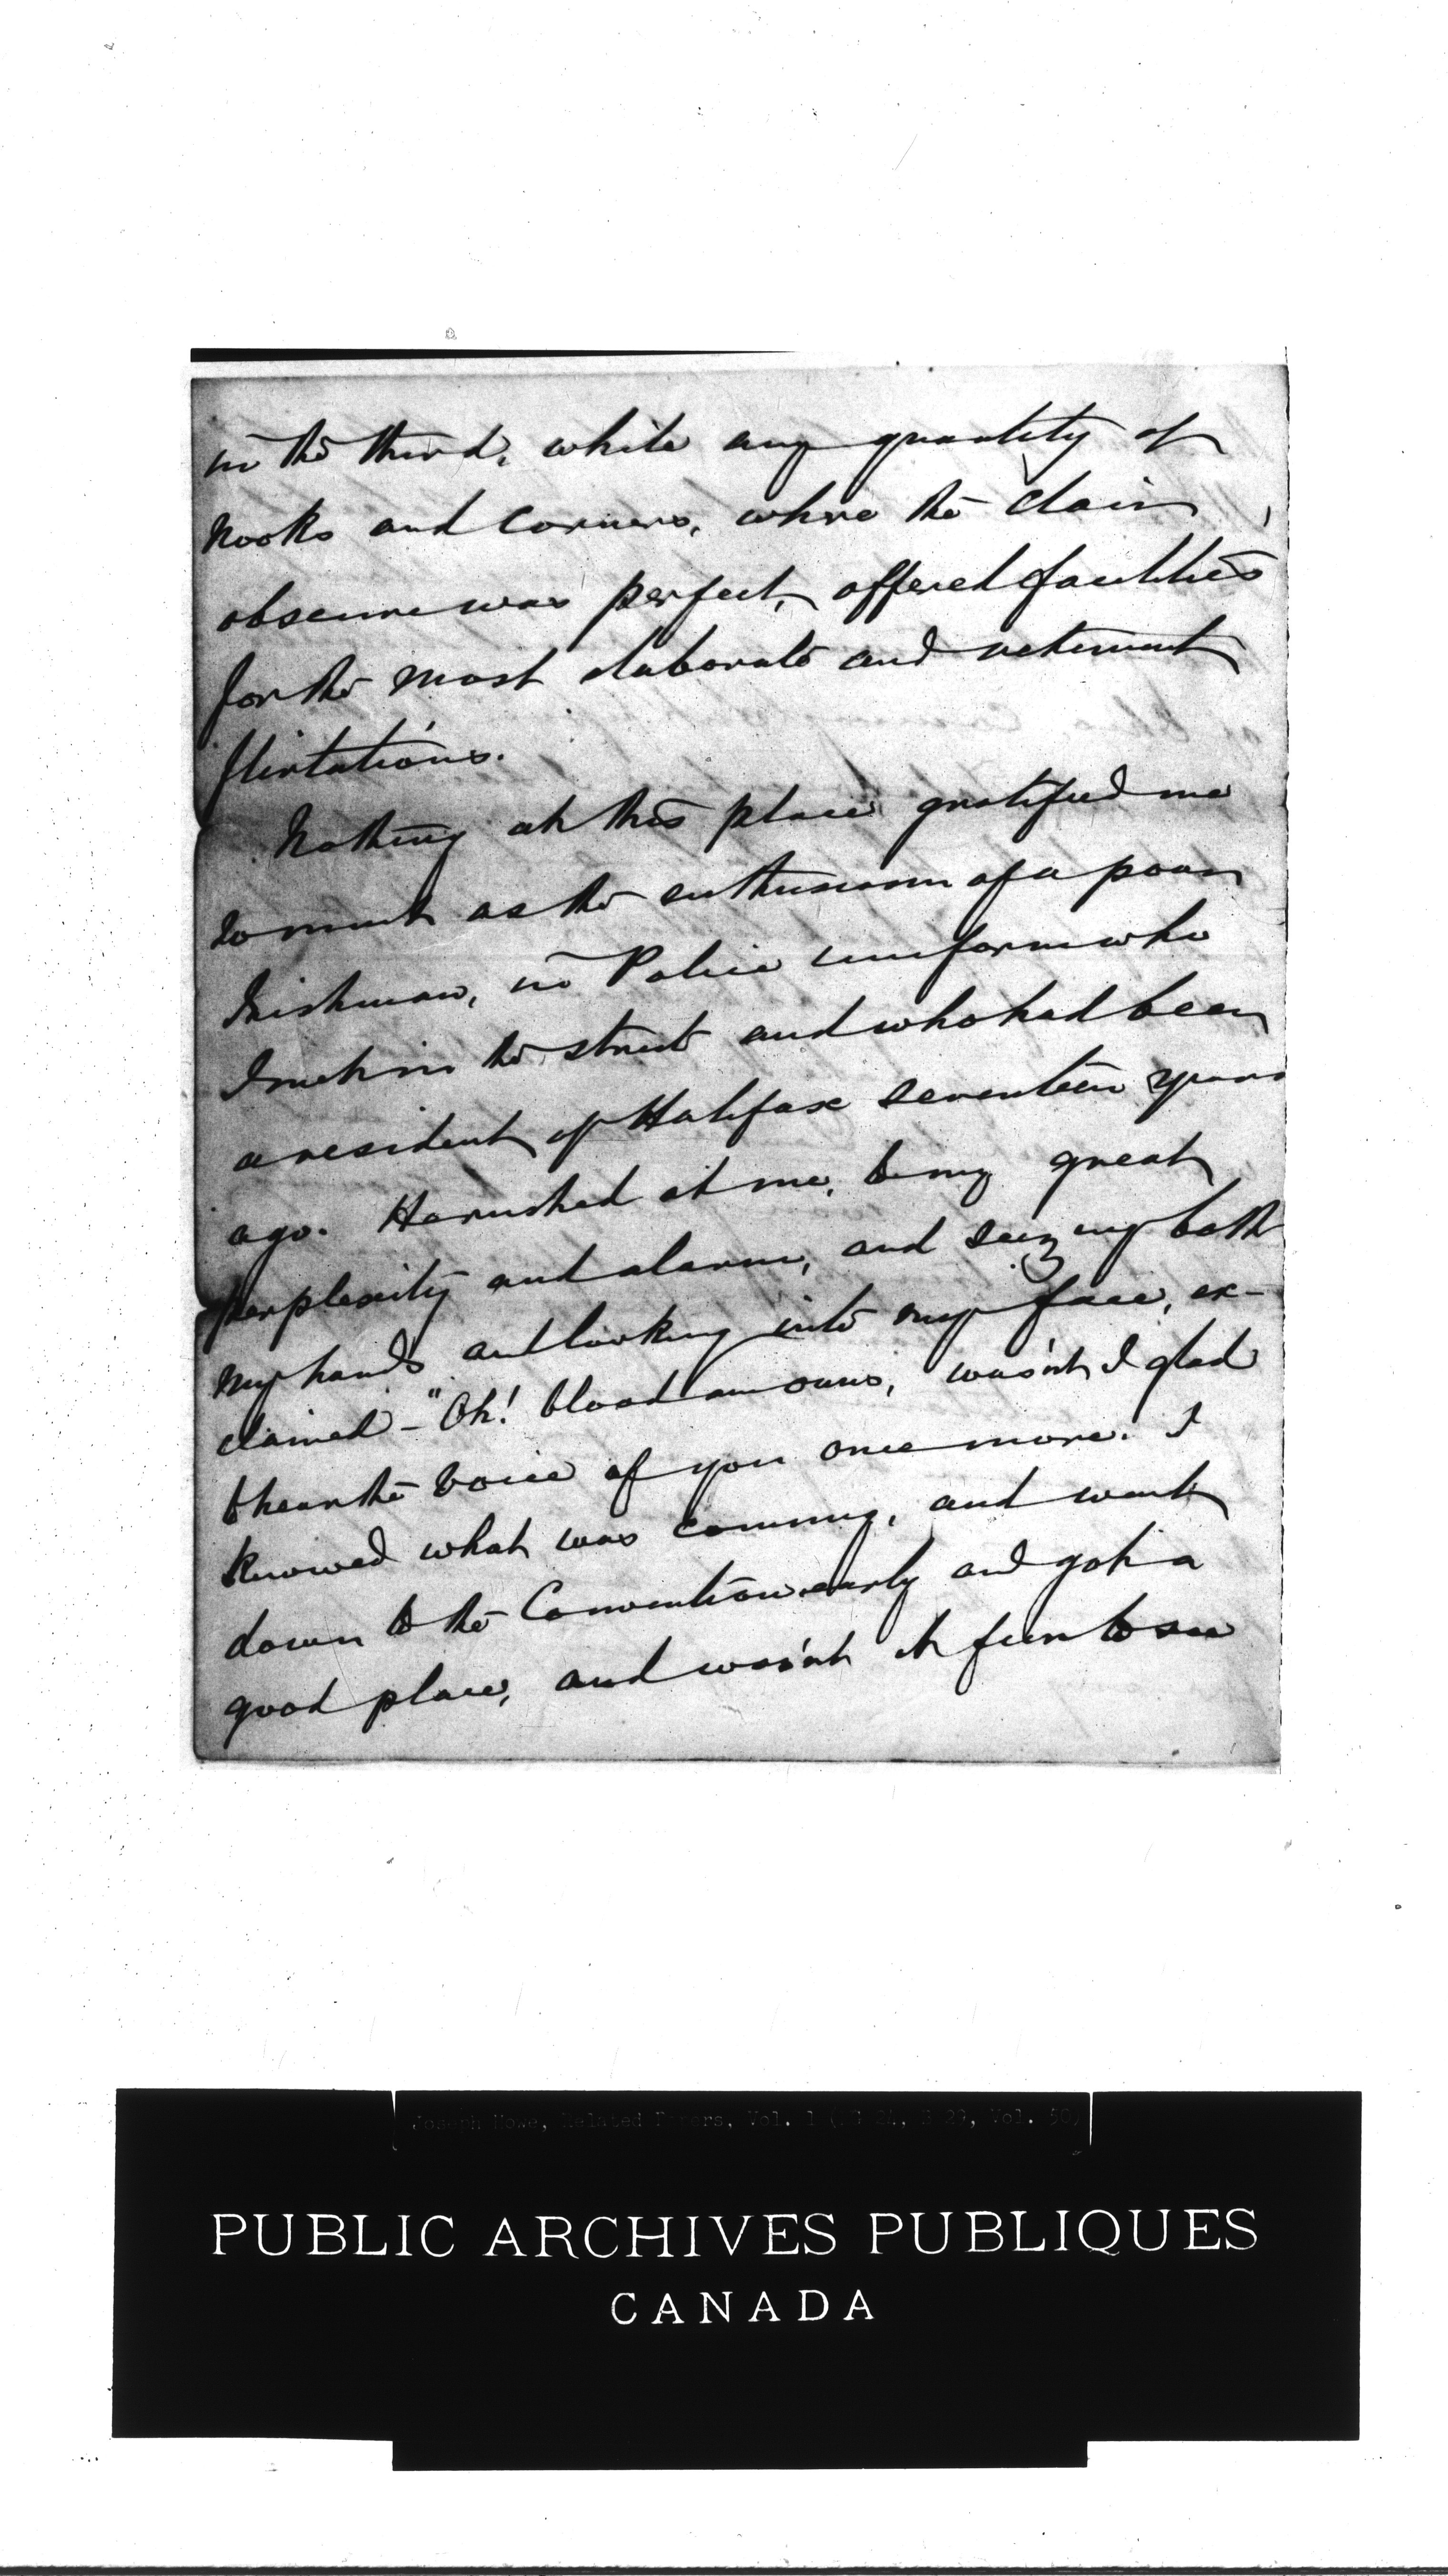 in the third, while any quantity of
nooks and corners, where the clair
obscure was perfect, offered facilities
for the most elaborate and vehement
flirtations.
Nothing at this place gratified me
so much as the enthusiasm of a poor
Irishman, in Police uniform who
I met in the street and who had been
a resident of Halifax seventeen years
ago. He rushed at me, to my great
perplexity and alarm, and seizg my both
my hands and looking into my face, ex-
claimed – "Oh! blood an ouns, was'nt I glad
to hear the voice of you once more. I
knowed what was coming, and went
down to the Convention early and got a
good place, and was'nt it fun to see
Joseph Howe, Related Papers, Vol. 1 (MG 24, B 29, Vol. 50)
PUBLIC ARCHIVES PUBLIQUES
CANADA